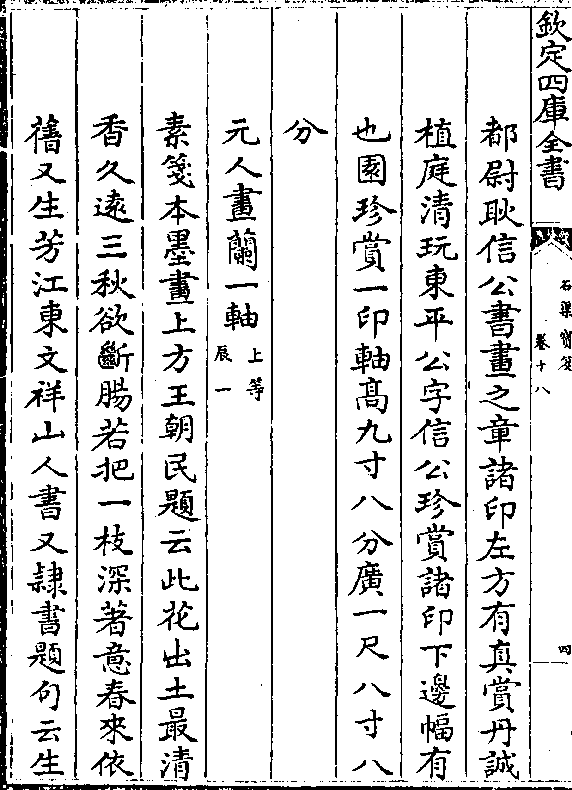 欽定四庫全書
石渠寶笈
卷十八
四
都尉耿信公書畫之章諸印左方有真賞丹誠
植庭清玩東平公字信公珍賞諸印下邊幅有
也園珍賞一印軸高九寸八分廣一尺八寸八
分
元人畫蘭一軸上等辰一
素箋本墨畫上方王朝民題云此花出土最清
香久遠三秋欲斷腸若把一枝深著意春來依
舊又生芳江東文祥山人書又隸書題句云生